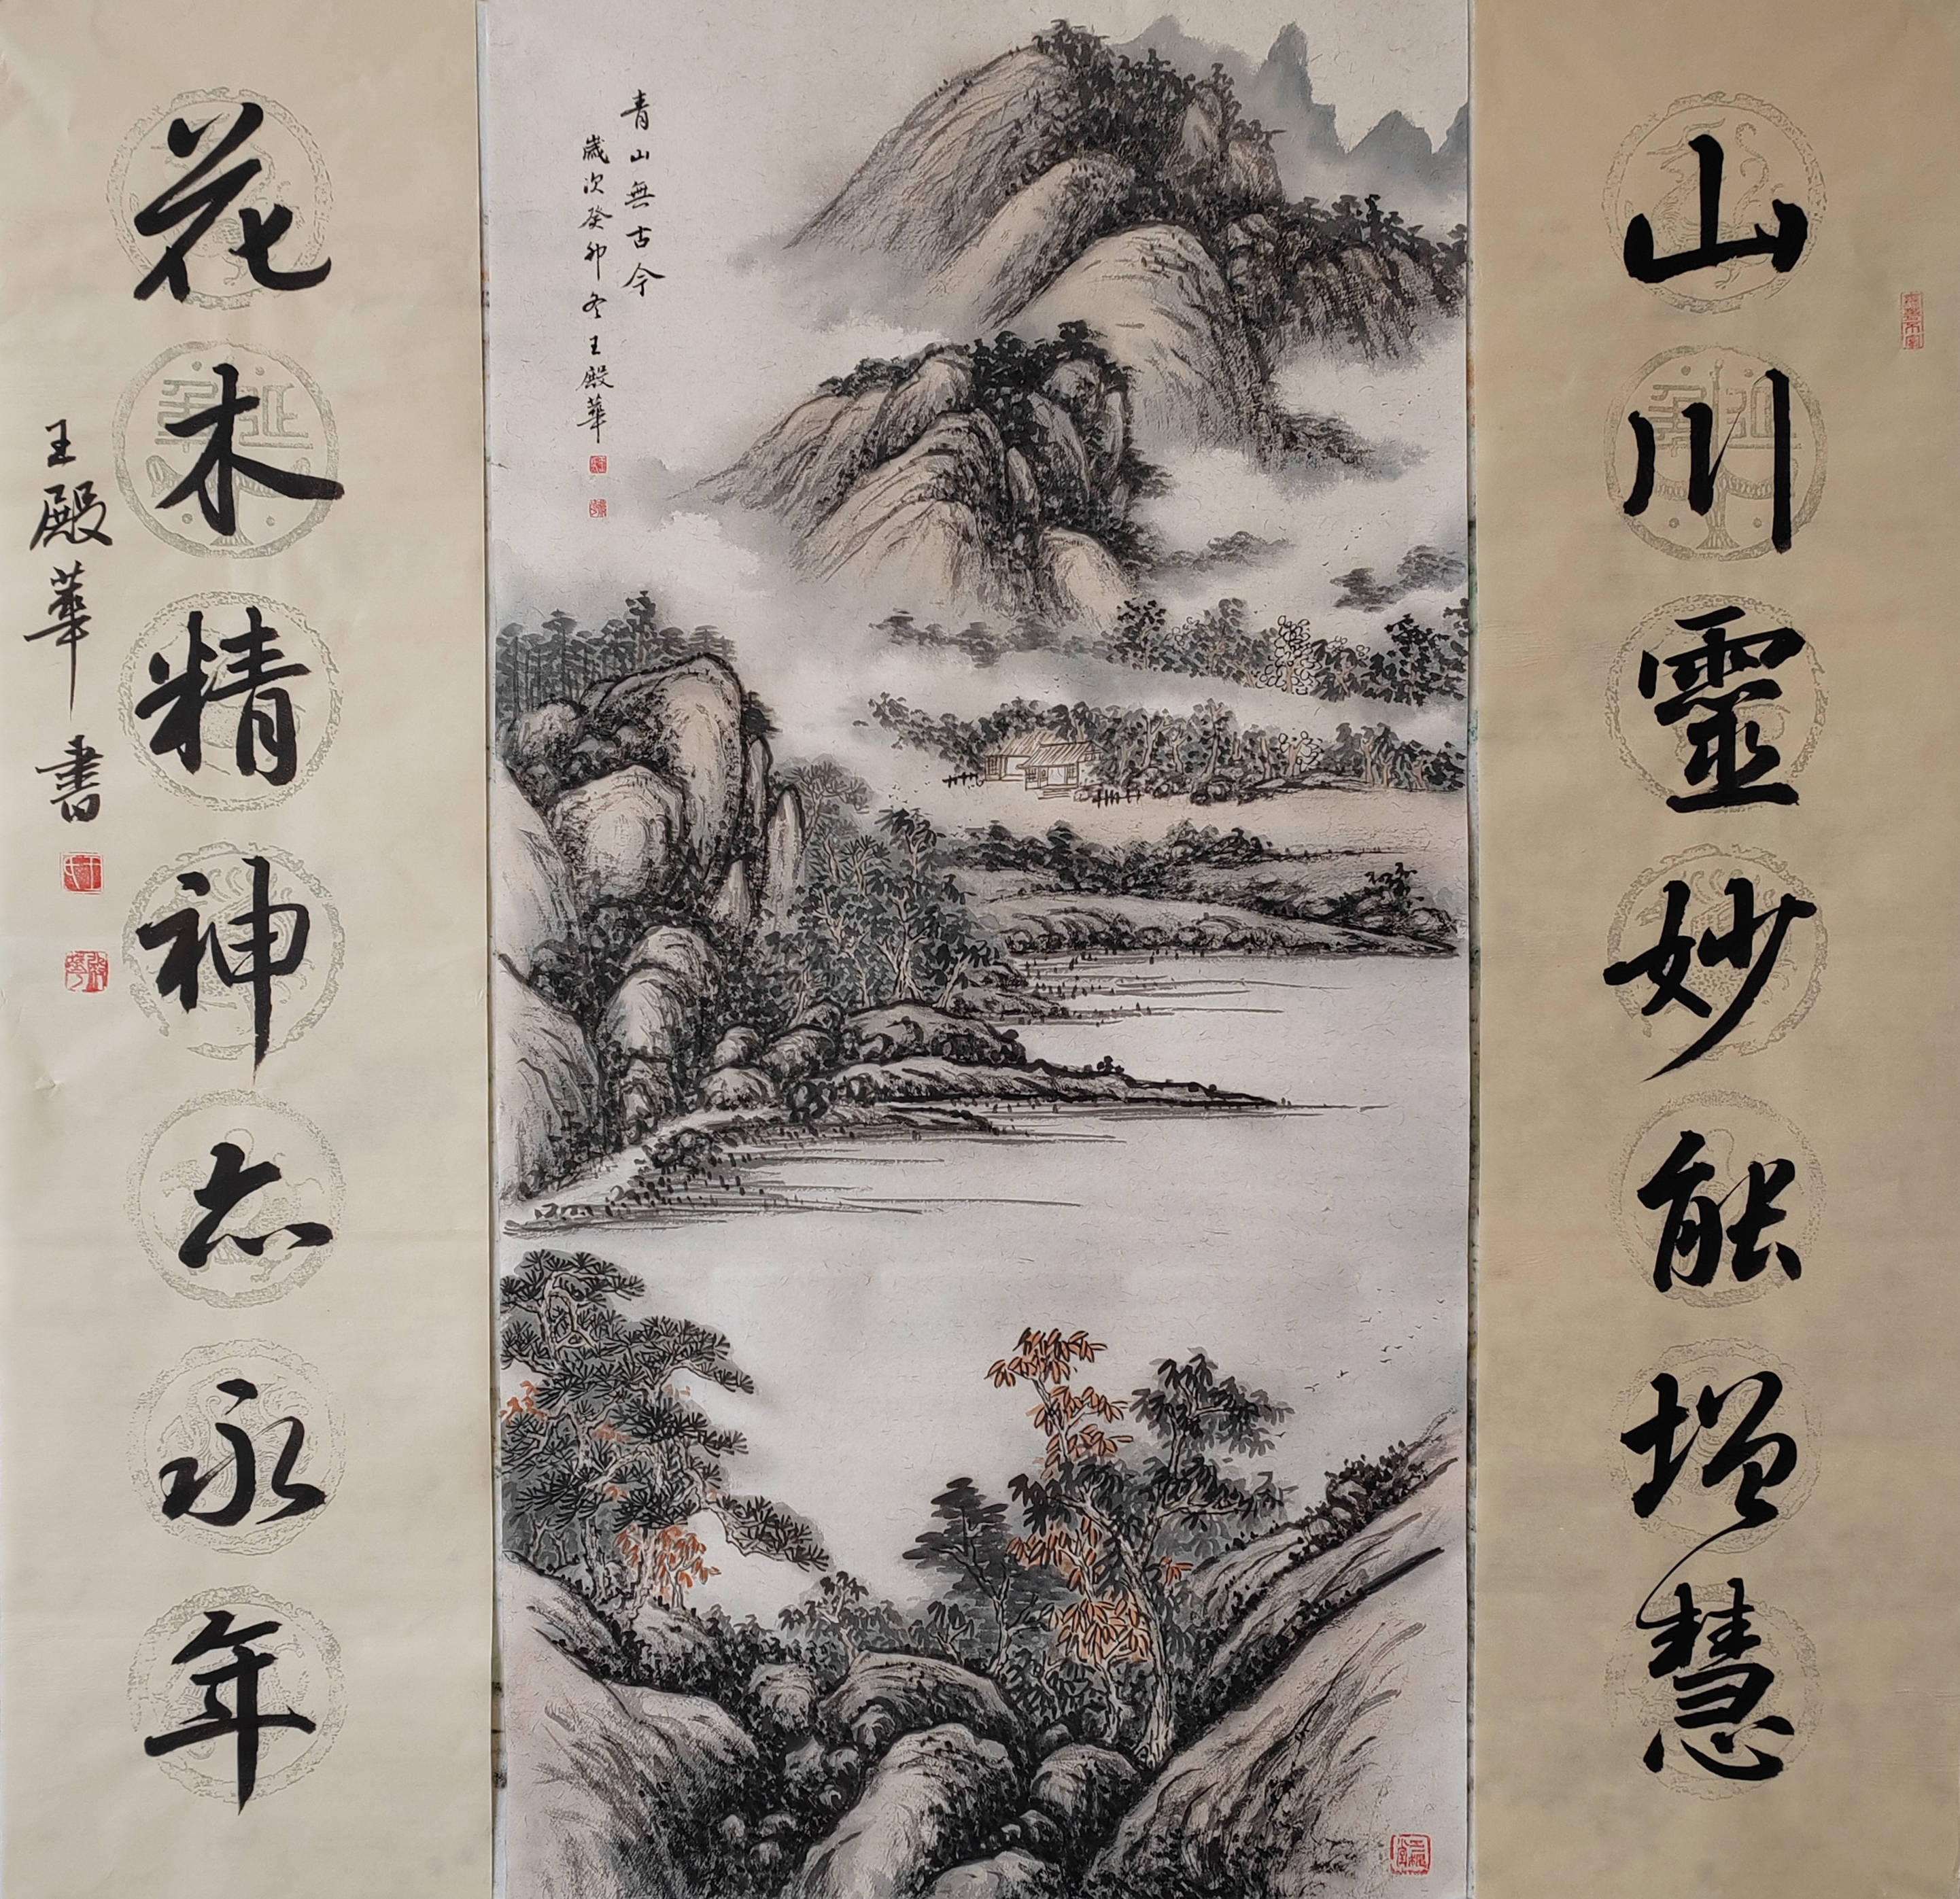 山川靈妙能增慧
青山無古今
歲次癸卯冬王殿華
花木精神亦永年
王殿華書